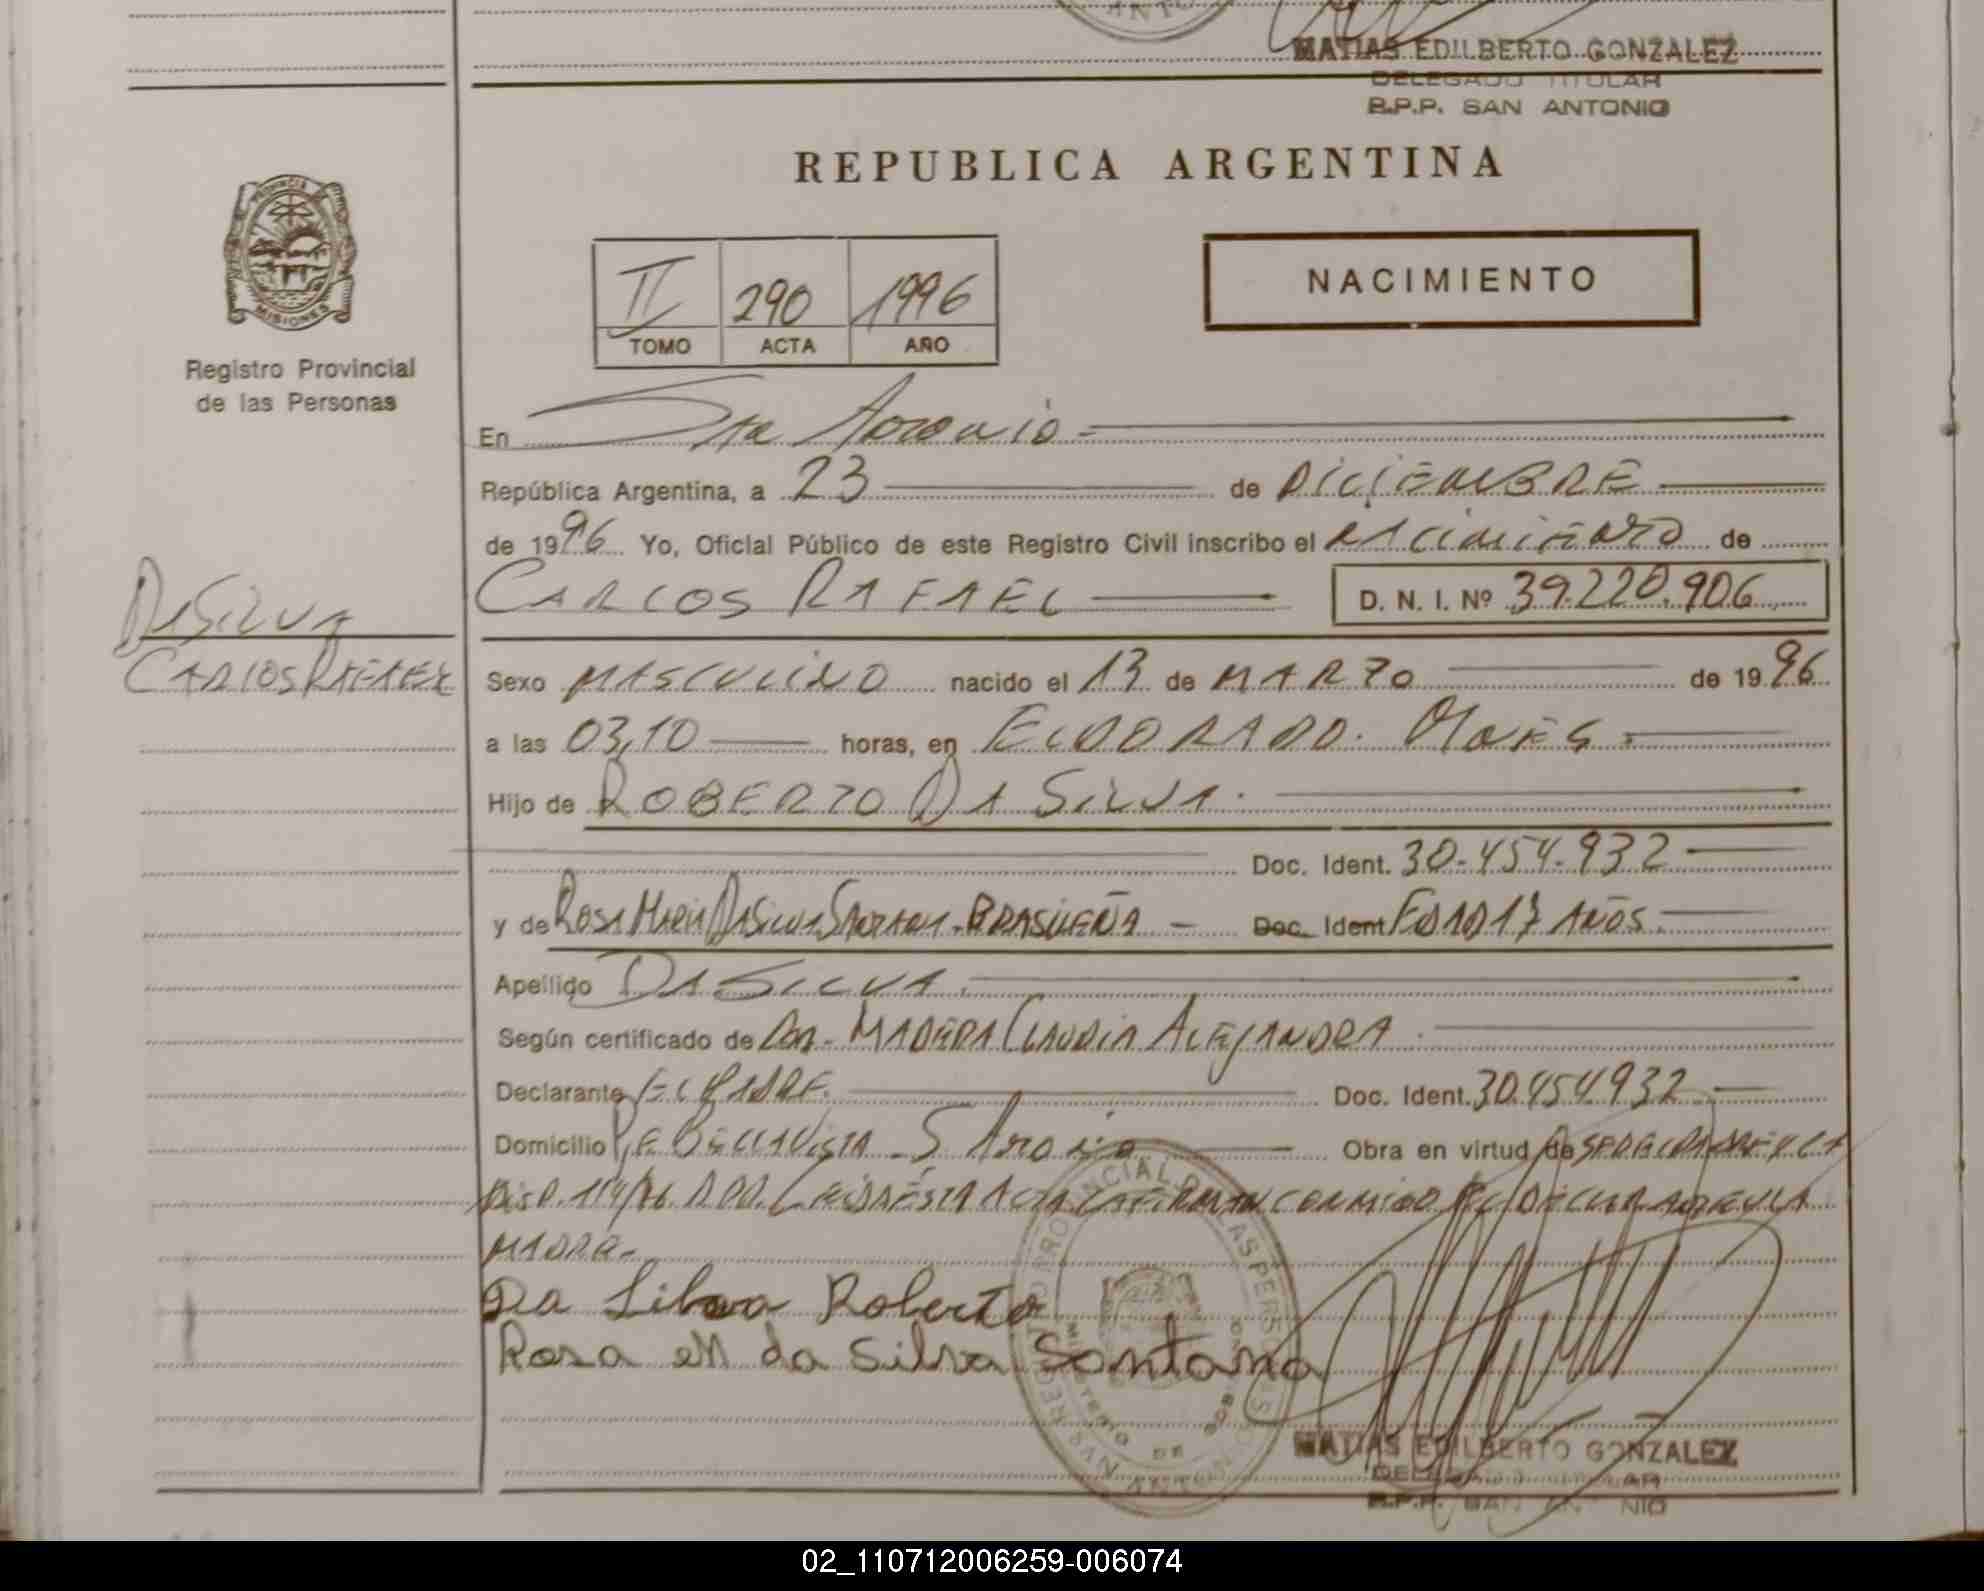 MATIAS EDILBERTO GONZALEZ
DELEGADO TITULAR
R.P.P. SAN ANTONIO
REPUBLICA ARGENTINA
PROVINCIA
MISIONES
Registro Provincial
de las Personas
NACIMIENTO
II 290 1996
TOMO ACTA AÑO
En San Antonio
República Argentina, a 23 de DICIEMBRE
de 1996 Yo, Oficial Público de este Registro Civil inscribo el nacimiento de
CARLOS RAFAEL D. N. I. Nº 39.220.906
DASILVA
CARLOS RAFAEL
Sexo MASCULINO nacido el 13 de MARZO de 1996
a las 03,10 horas, en ELDORADO. Mnes.
Hijo de ROBERTO DA SILVA.
Doc. Ident. 30.454.932
y de ROSA MARIA DASILVA SANTANA. BRASILEÑA Doc. Ident EDAD 17 AÑOS.
Apellido DASILVA.
Según certificado de Dra. MADERA CLAUDIA ALEJANDRA.
Declarante EL PADRE. Doc. Ident. 30.454.932
Domicilio BELLA VISTA - S. Antonio Obra en virtud de
DISP. 114/96. LEIDA ESTA ACTA LA FIRMAN CONMIGO EL DECLARANTE Y LA
MADRE-
Da Silva Roberto
Rosa M da Silva Santana
MATIAS EDILBERTO GONZALEZ
DELEGADO TITULAR
R.P.P. SAN ANTONIO
02_110712006259-006074